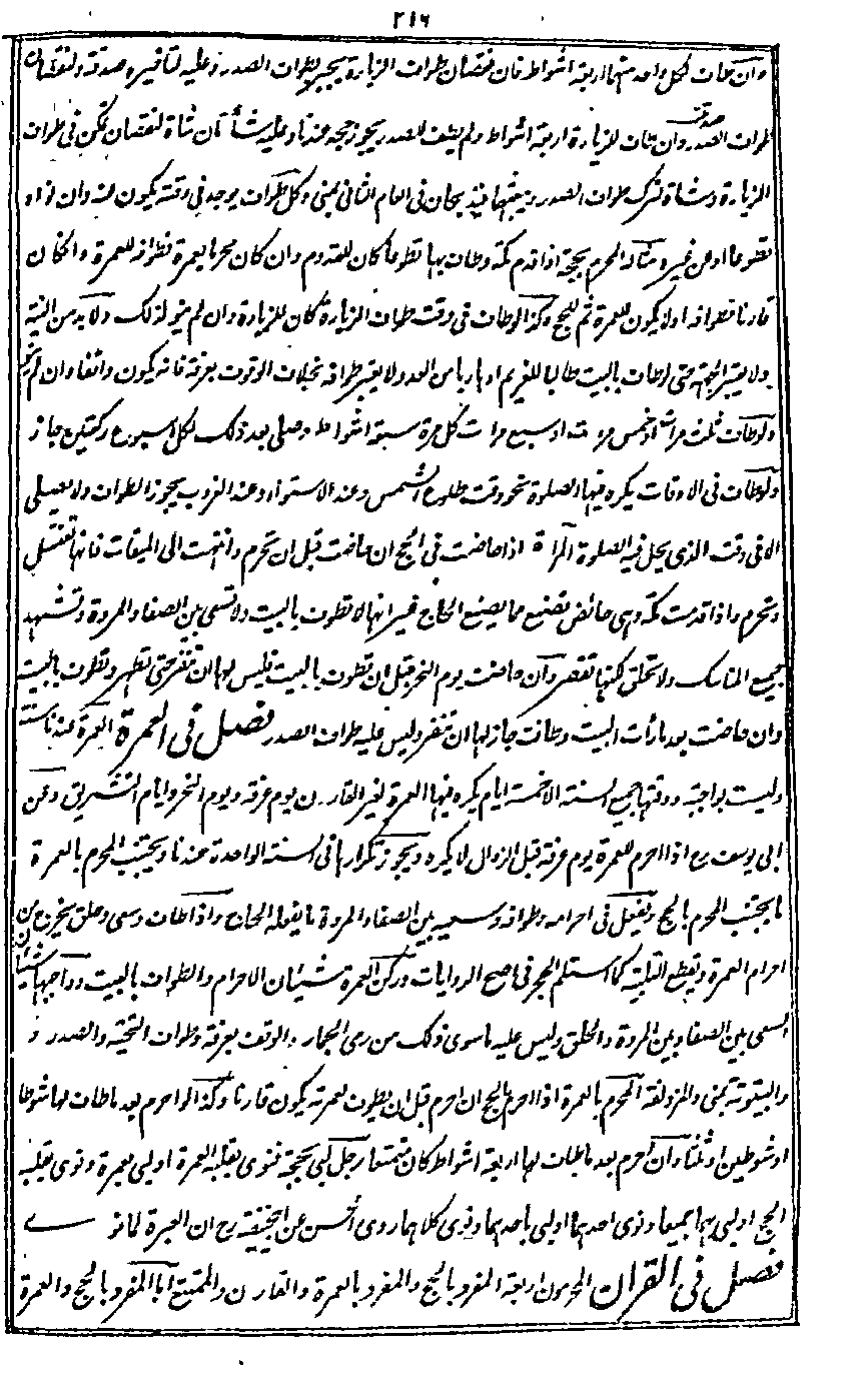 ٢١٦
وان طاف لكل واحد منهما اربعة اشواط فان نقصان طواف الزيارة يجبر بطواف الصدر وعليه لتأخيره صدقة ولنقصان
طواف الصدر صدقة وان طاف للزيارة اربعة اشواط ولم يطف للصدر يجوز حجه عندنا وعليه شاتان شاة لنقصان تمكن فى طواف
الزيارة وشاة لترك طواف الصدر ويبعثهما فيذبحان فى العام الثانى بمنى وكل طواف يوجد فى وقته يكون له وان نواه
تطوعا او عن غيره مثاله المحرم بحجة اذا قدم مكة وطاف بها تطوعا كان للقدوم وان كان محرما بعمرة فطوافه للعمرة وان كان
قارنا فطوافه اولا يكون للعمرة ثم للحج وكذا لو طاف فى وقت طواف الزيارة كان للزيارة وان لم ينو لذلك ولا بد من النية
ولا يعتبر الجهة حتى لو طاف بالبيت طالبا للغريم او هاربا من العدو لا يعتبر طوافه بخلاف الوقوف بعرفة فانه يكون واقفا وان لم ينو
ولو طاف ثلث مرات او خمس مرات او سبع مرات كل مرة سبعة اشواط وصلى بعد ذلك لكل اسبوع ركعتين جاز
ولو طاف فى الاوقات يكره فيها الصلوة نحو وقت طلوع الشمس وعند الاستواء وعند الغروب يجوز الطواف ولا يصلى
الا فى وقت الذى يحل فيه الصلوة المرأة اذا حاضت فى الحج ان حاضت قبل ان تحرم وانتهت الى الميقات فانها تغتسل
وتحرم واذا قدمت مكة وهى حائض تصنع مما يصنع الحاج غير انها لا تطوف بالبيت ولا تسعى بين الصفا والمروة وتشهد
جميع المناسك ولا تحلق لكنها تقصر وان حاضت يوم النحر قبل ان تطوف بالبيت فليس لها ان تنفر حتى تطهر وتطوف بالبيت
وان حاضت بعد ما رأت البيت وطافت جاز لها ان تنفر وليس عليه طواف الصدر فصل فى العمرة العمرة عندنا سنة
وليست بواجبة ووقتها جميع السنة الا خمسة ايام يكره فيها العمرة لغير القارن يوم عرفة ويوم النحر وايام التشريق وعن
ابى يوسف رح اذا احرم للعمرة يوم عرفة قبل الزوال لا يكره ويجوز تكرارها فى السنة الواحدة عندنا ويجتنب المحرم بالعمرة
ما يجتنب المحرم بالحج ويفعل فى احرامه وطوافه وسعيه بين الصفا والمروة ما يفعله الحاج واذا طاف وسعى وحلق يخرج من
احرام العمرة ويقطع التلبية كما استلم الحجر فى اصح الروايات وركن العمرة شيئان الاحرام والطواف بالبيت وواجبها شيئان
السعى بين الصفا وبين المروة والحلق وليس عليه ما سوى ذلك من رمى الجمار والوقف بعرفة وطواف التحية والصدر و
والبيتوتة بمنى والمزدلفة المحرم بالعمرة اذا احرم بالحج ان احرم قبل ان يطوف لعمرته يكون قارنا وكذا لو احرم بعد ما طاف لها شوطا
او شوطين او ثلثا وان احرم بعد ما طاف لها اربعة اشواط كان متمتعا رجل لبى بحجة فنوى بقلبه العمرة او لبى بعمرة ونوى بقلبه
الحج او لبى بهما جميعا ونوى احدهما او لبى باحدهما ونوى كلاهما روى الحسن عن ابى حنيفة رح ان العبرة لما نوى
فصل فى القران المحرمون اربعة المفرد بالحج والمفرد بالعمرة والقارن والمتمتع اما المفرد بالحج والعمرة